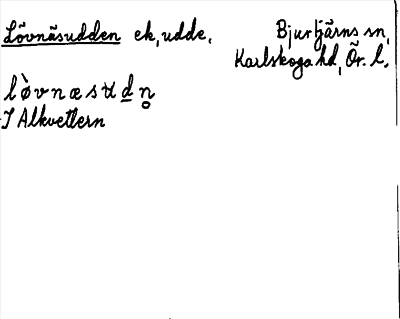 Lövnäsudden ek, udde. Bjurtjärns sn,
Karlskoga hd, Ör. l.
lòvnæsʉdn̥
I Alkvettern